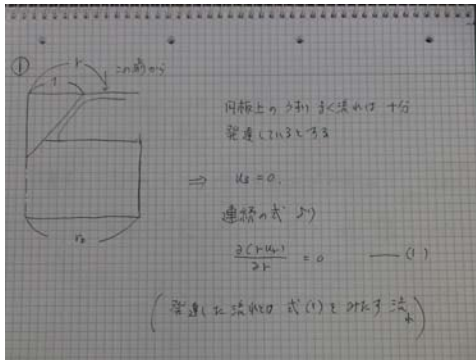 ①
r
1
この前から
円板上のうすいまく流れは十分
発達しているとする
⇒ u₃ = 0.
連続の式より
∂(r u_r) / ∂r = 0 —— (1)
(発達した流れとは式(1)をみたす流れ)
r₀